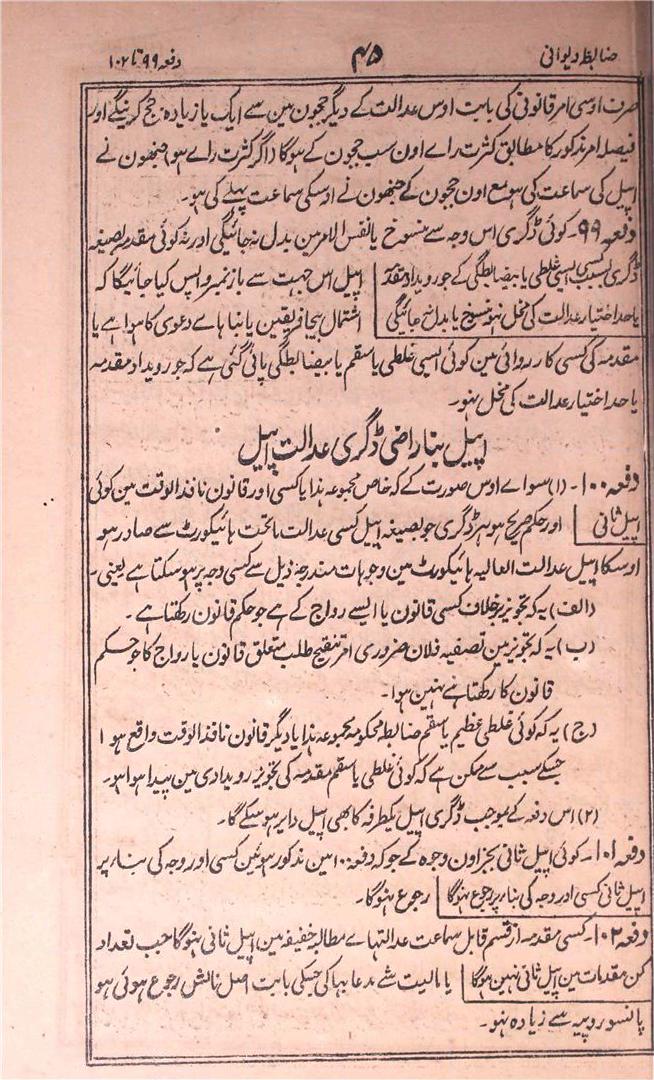 ضابطہ دیوانی
۴۵
دفعہ ۹۹ تا ۱۰۲
صرف اوسی امر قانونی کی بابت اوس عدالت کے دیگر ججون مین سے ایک یا زیادہ جج کرینگے اور
فیصلہ امر مذکور کا مطابق کثرت راے اون سب ججون کے ہوگا (اگر کثرت راے ہو) جنھون نے
اپیل کی سماعت کی ہو مع اون ججون کے جنھون نے اوسکی سماعت پہلے کی ہو۔
دفعہ ۹۹۔ کوئی ڈگری اس وجہ سے منسوخ یا نفس الامر مین بدل نہ جائیگی اور نہ کوئی مقدمہ بصیغہ
ڈگری بسبب ایسی غلطی یا بیضابطگی کے جو رویداد مقدمہ
یا حد اختیار عدالت کی مخل نہو منسوخ یا بدلی نہ جائیگی
اپیل اس جہت سے باز نمبر واپس کیا جائیگا کہ
اشتمال بیجا فریقین یا بنا ہاے دعوی کا ہوا ہے یا
مقدمہ کی کسی کارروائی مین کوئی ایسی غلطی یا سقم یا بیضابطگی پائی گئی ہے کہ جو رویداد مقدمہ
یا حد اختیار عدالت کی مخل نہو۔
اپیل بناراضی ڈگری عدالت اپیل
دفعہ ۱۰۰۔ (۱) سواے اوس صورت کے کہ خاص مجموعہ ہذا یا کسی اور قانون نافذ الوقت مین کوئی
اپیل ثانی
اور حکم صریح ہو ہر ڈگری جو بصیغہ اپیل کسی عدالت ماتحت ہائیکورٹ سے صادر ہو
اوسکا اپیل عدالت العالیہ ہائیکورٹ مین وجوہات مندرجہ ذیل سے کسی وجہ پر ہو سکتا ہے یعنی۔
(الف) یہ کہ تجویز برخلاف کسی قانون یا ایسے رواج کے ہے جو حکم قانون رکھتا ہے۔
(ب) یہ کہ تجویز مین تصفیہ فلان ضروری امر تنقیح طلب متعلق قانون یا رواج کا جو حکم
قانون کا رکھتا ہے نہین ہوا۔
(ج) یہ کہ کوئی غلطی عظیم یا سقم ضابطہ محکومہ مجموعہ ہذا یا دیگر قانون نافذ الوقت واقع ہوا
جسکے سبب سے ممکن ہے کہ کوئی غلطی یا سقم مقدمہ کی تجویز رویدادی مین پیدا ہوا ہو۔
(۲) اس دفعہ کے بموجب ڈگری اپیل یکطرفہ کا بھی اپیل دایر ہو سکے گا۔
دفعہ ۱۰۱۔ کوئی اپیل ثانی بجز اون وجوہ کے جو کہ دفعہ ۱۰۰ مین مذکور ہوئین کسی اور وجہ کی بناء پر
اپیل ثانی کسی اور وجہ کی بناء پر رجوع نہوگا
رجوع نہوگا۔
دفعہ ۱۰۲۔ کسی مقدمہ از قسم قابل سماعت عدالتہاے مطالبہ خفیفہ مین اپیل ثانی نہوگا جب تعداد
کن مقدمات مین اپیل ثانی نہین ہوگا
یا مالیت شے مدعا بہا کی جسکی بابت اصل نالش رجوع ہوئی ہو
پانسو روپیہ سے زیادہ نہو۔